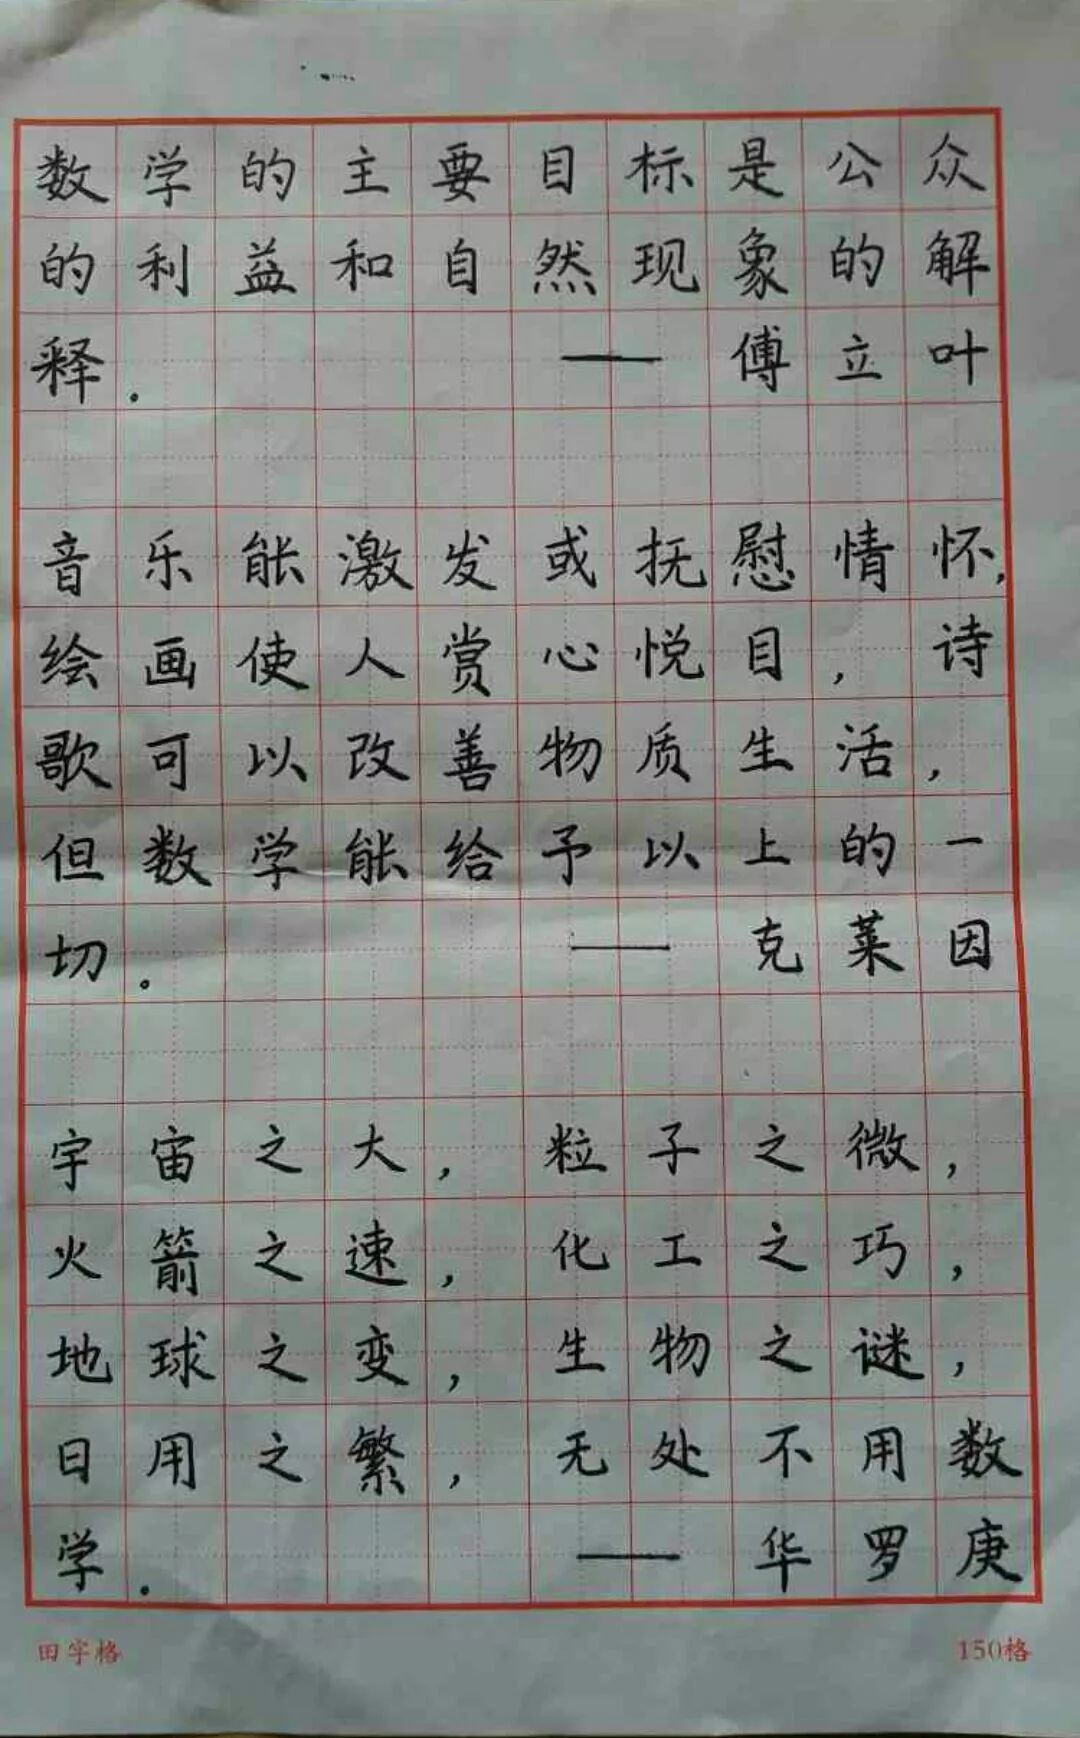 数学的主要目标是公众
的利益和自然现象的解
释. ——傅立叶
音乐能激发或抚慰情怀,
绘画使人赏心悦目,诗
歌可以改善物质生活,
但数学能给予以上的一
切. ——克莱因
宇宙之大,粒子之微,
火箭之速,化工之巧,
地球之变,生物之谜,
日用之繁,无处不用数
学. ——华罗庚
田字格 150格